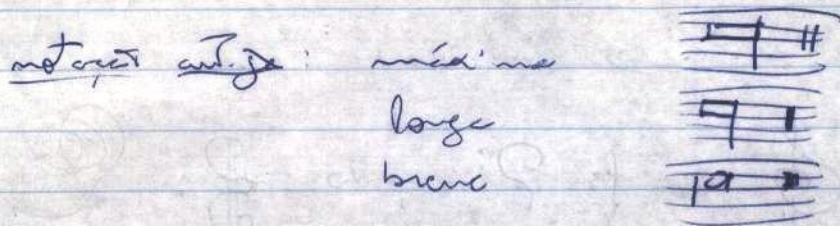 notação antiga: máxima
longa
breve